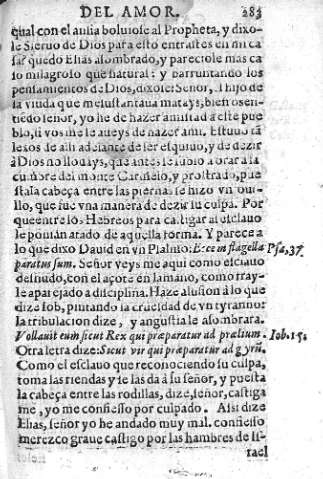 DEL AMOR. 283
qual con el ansia boluiose al Propheta, y dixo-
le Sieruo de Dios para esto entrastes en mi ca
sa? quedo Elias assombrado, y pareciole mas ca
so milagroso que natural: y barruntando los
pensamientos de Dios, dixole: Señor, al hijo de
la viuda que me sustentaua matays, bien o sen-
tiedo señor, yo he de hazer amistad a este pue
blo, si vos me le aueys de hazer a mi. Estuuo tã
lexos de alli adelante de ser esquiuo, y de dezir
à Dios no llouays, que antes se subio a orar a la
cumbre del monte Carmelo, y prostrado, pue
sta la cabeça entre las piernas se hizo vn oui-
llo, que fue vna manera de dezir su culpa. Por
que entre los Hebreos para castigar al esclauo
le ponian atado de aquella forma. Y parece a
lo que dixo Dauid en vn Psalmo: Ecce in flagella
Psa, 37.
paratus sum. Señor veys me aqui como esclauo
desnudo, con el açote en la mano, como fray-
le aparejado a disciplina. Haze alusion à lo que
dize Iob, pintando la crueldad de vn tyranno:
la tribulacion dize, y angustia le asombrara.
Vallauit eum sicut Rex qui præparatur ad prælium.
Iob. 15.
Otra letra dize: Sicut vir qui præparatur ad gyrũ.
Como el esclauo que reconociendo su culpa,
toma las riendas y se las dà à su señor, y puesta
la cabeça entre las rodillas, dize, señor, castiga
me, yo me confiesso por culpado. Assi dize
Elias, señor yo he andado muy mal. confiesso
merezco graue castigo por las hambres de Is-
rael